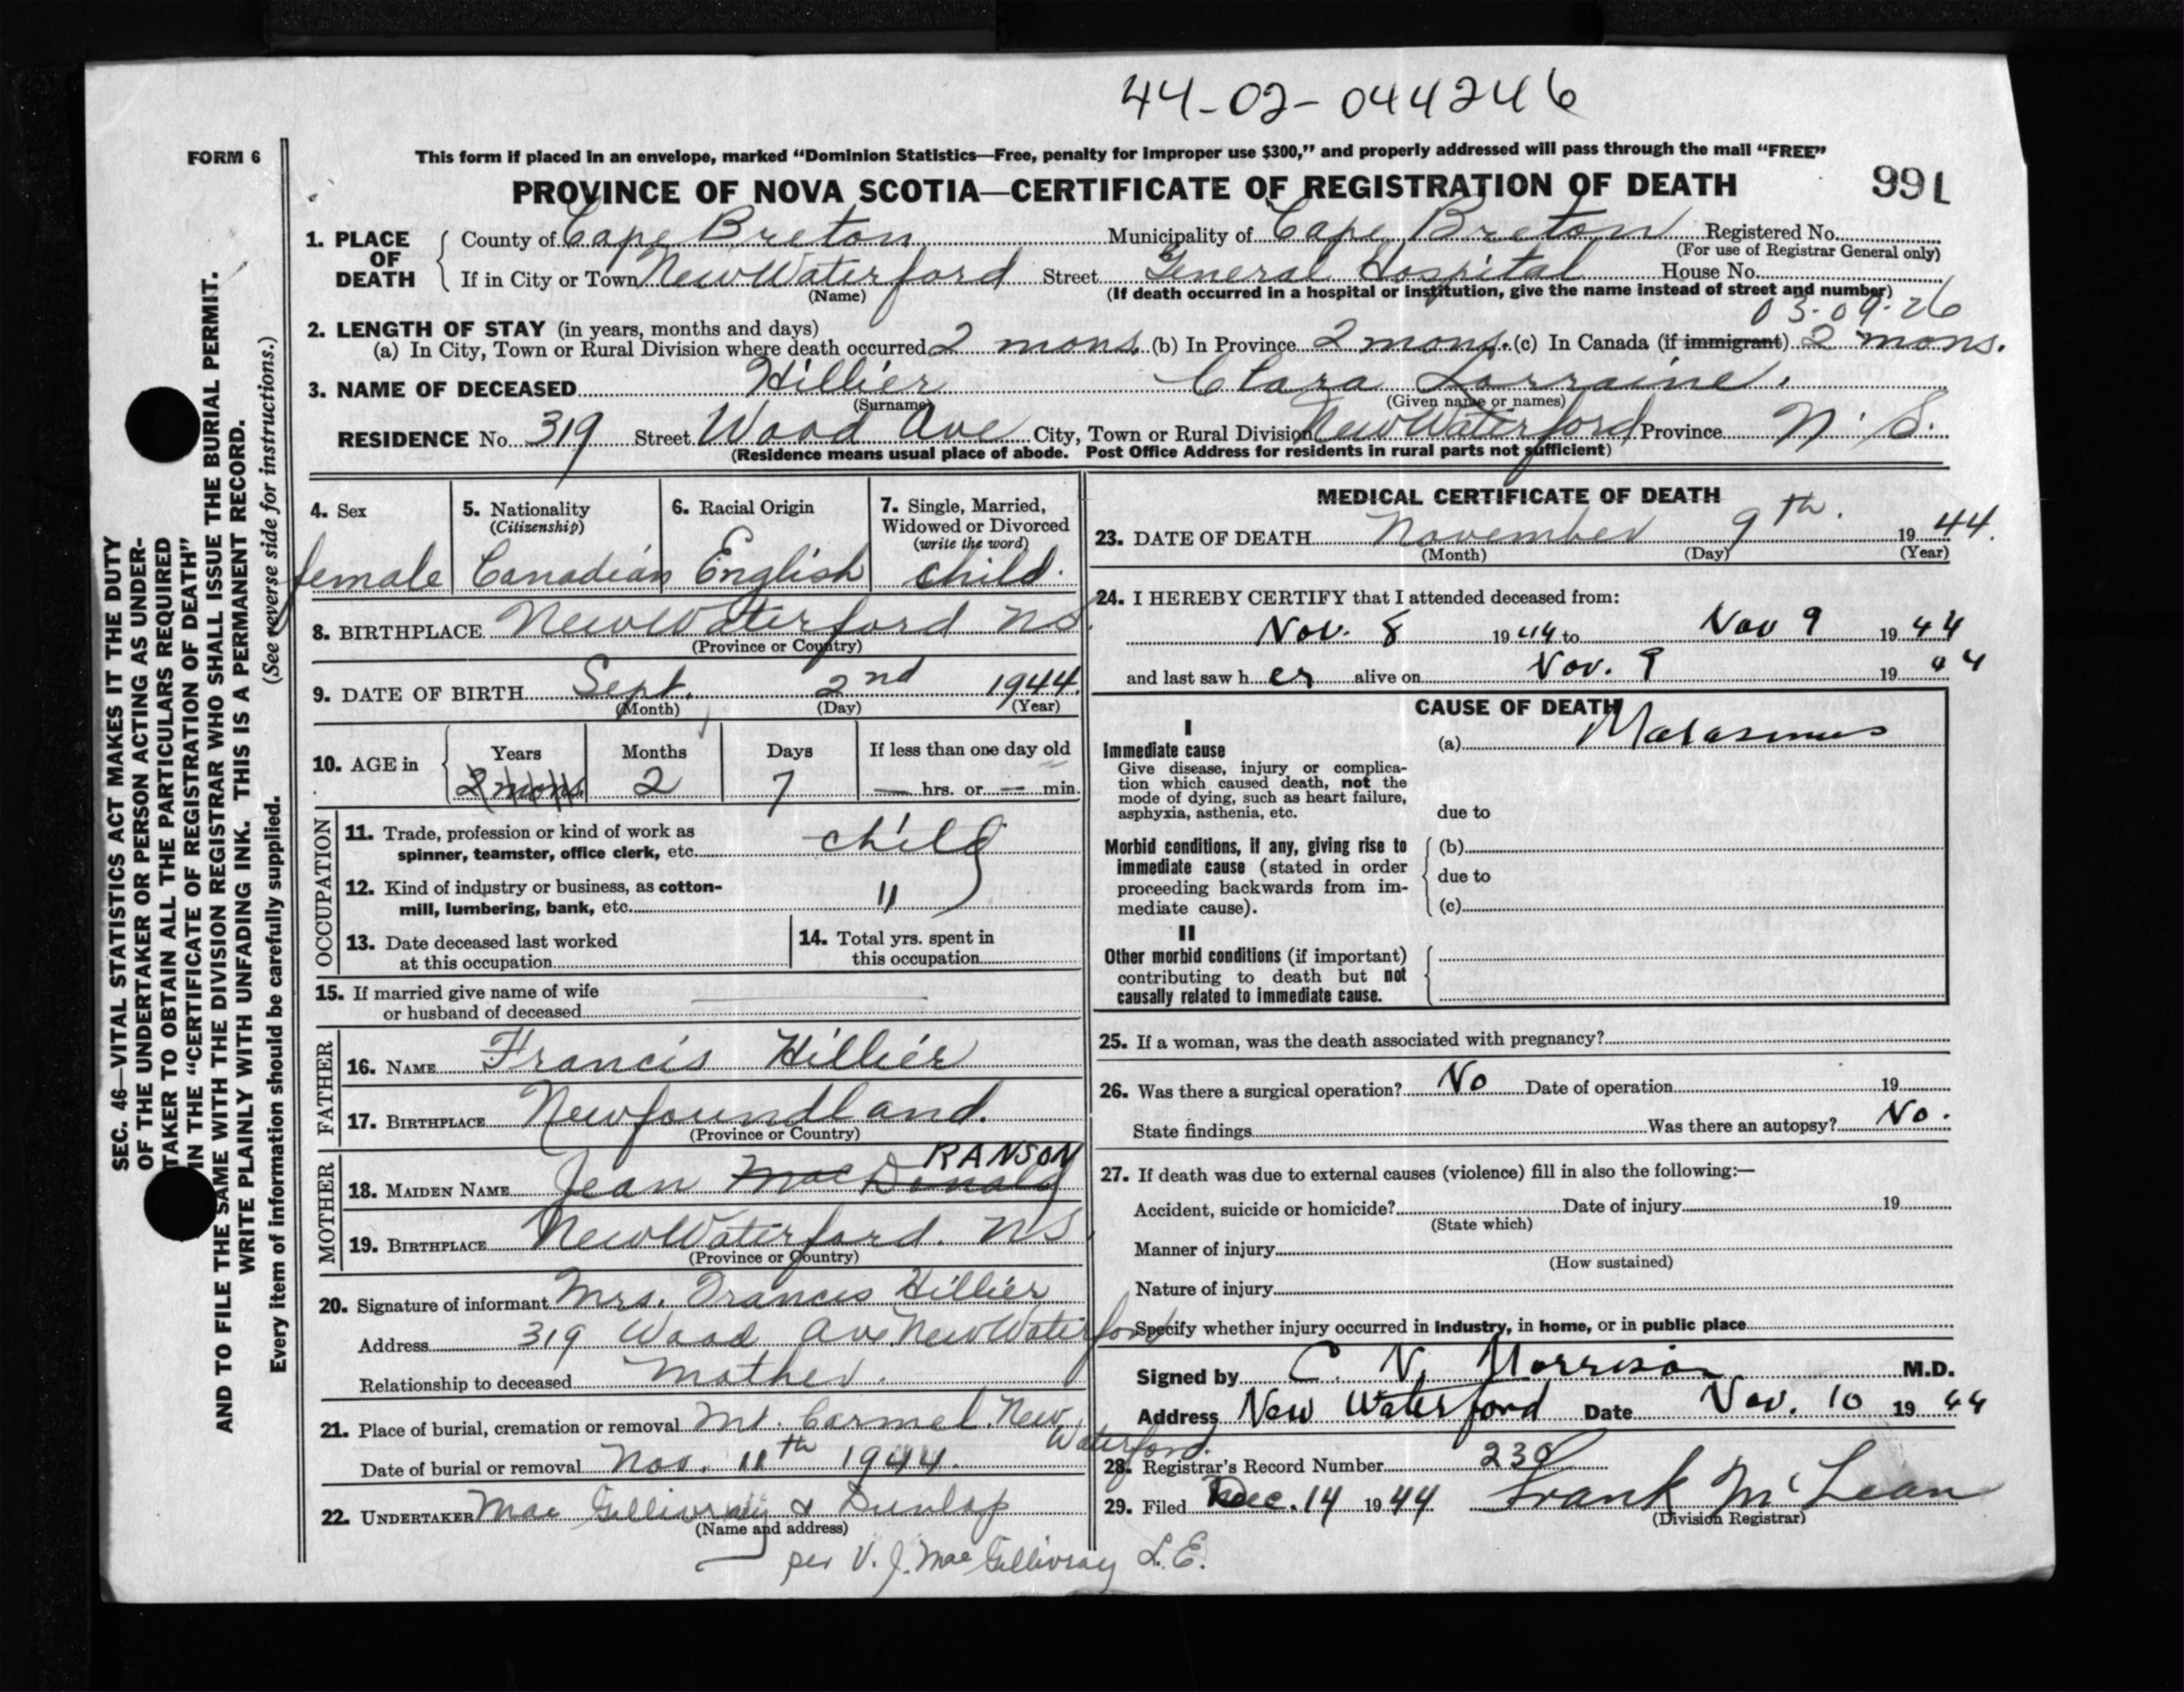 44-02-044246
FORM 6
This form if placed in an envelope, marked “Dominion Statistics—Free, penalty for improper use $300,” and properly addressed will pass through the mail “FREE”
PROVINCE OF NOVA SCOTIA—CERTIFICATE OF REGISTRATION OF DEATH 991
1. PLACE OF DEATH County of Cape Breton Municipality of Cape Breton Registered No.
(For use of Registrar General only)
If in City or Town New Waterford Street General Hospital House No.
(Name) (If death occurred in a hospital or institution, give the name instead of street and number)
03-09-26
2. LENGTH OF STAY (in years, months and days)
(a) In City, Town or Rural Division where death occurred 2 mons. (b) In Province 2 mons. (c) In Canada (if immigrant) 2 mons.
3. NAME OF DECEASED Hillier Clara Lorraine.
(Surname) (Given name or names)
RESIDENCE No. 319 Street Wood Ave City, Town or Rural Division New Waterford Province N.S.
(Residence means usual place of abode. Post Office Address for residents in rural parts not sufficient)
4. Sex 5. Nationality (Citizenship) 6. Racial Origin 7. Single, Married, Widowed or Divorced (write the word)
female Canadian English child.
8. BIRTHPLACE New Waterford NS.
(Province or Country)
9. DATE OF BIRTH Sept. 2nd 1944.
(Month) (Day) (Year)
10. AGE in Years Months Days If less than one day old
2 mons. 2 7 — hrs. or — min.
OCCUPATION
11. Trade, profession or kind of work as spinner, teamster, office clerk, etc. child
12. Kind of industry or business, as cotton-mill, lumbering, bank, etc. "
13. Date deceased last worked at this occupation
14. Total yrs. spent in this occupation
15. If married give name of wife or husband of deceased
FATHER
16. NAME Francis Hillier
17. BIRTHPLACE Newfoundland.
(Province or Country)
MOTHER
RANSON
18. MAIDEN NAME Jean MacDonald
19. BIRTHPLACE New Waterford. NS.
(Province or Country)
20. Signature of informant Mrs. Francis Hillier
Address 319 Wood Ave New Waterford
Relationship to deceased Mother.
21. Place of burial, cremation or removal Mt. Carmel. New Waterford.
Date of burial or removal Nov. 11th 1944.
22. UNDERTAKER Mac Gillivray & Dunlop
(Name and address)
per V. J. Mac Gillivray L.E.
MEDICAL CERTIFICATE OF DEATH
23. DATE OF DEATH November 9th. 1944.
(Month) (Day) (Year)
24. I HEREBY CERTIFY that I attended deceased from:
Nov. 8 1944 to Nov 9 1944
and last saw her alive on Nov. 9 1944
CAUSE OF DEATH
I
Immediate cause
Give disease, injury or complication which caused death, not the mode of dying, such as heart failure, asphyxia, asthenia, etc.
(a) Marasmus
due to
Morbid conditions, if any, giving rise to immediate cause (stated in order proceeding backwards from immediate cause).
(b)
due to
(c)
II
Other morbid conditions (if important) contributing to death but not causally related to immediate cause.
25. If a woman, was the death associated with pregnancy?
26. Was there a surgical operation? No Date of operation 19
State findings Was there an autopsy? No.
27. If death was due to external causes (violence) fill in also the following:—
Accident, suicide or homicide? Date of injury 19
(State which)
Manner of injury
(How sustained)
Nature of injury
Specify whether injury occurred in industry, in home, or in public place
Signed by C. N. Morrison M.D.
Address New Waterford Date Nov. 10 1944
28. Registrar's Record Number 230
29. Filed Dec. 14 1944 Frank McLean
(Division Registrar)
SEC. 46—VITAL STATISTICS ACT MAKES IT THE DUTY
OF THE UNDERTAKER OR PERSON ACTING AS UNDER-
TAKER TO OBTAIN ALL THE PARTICULARS REQUIRED
IN THE “CERTIFICATE OF REGISTRATION OF DEATH”
AND TO FILE THE SAME WITH THE DIVISION REGISTRAR WHO SHALL ISSUE THE BURIAL PERMIT.
WRITE PLAINLY WITH UNFADING INK. THIS IS A PERMANENT RECORD.
Every item of information should be carefully supplied. (See reverse side for instructions.)